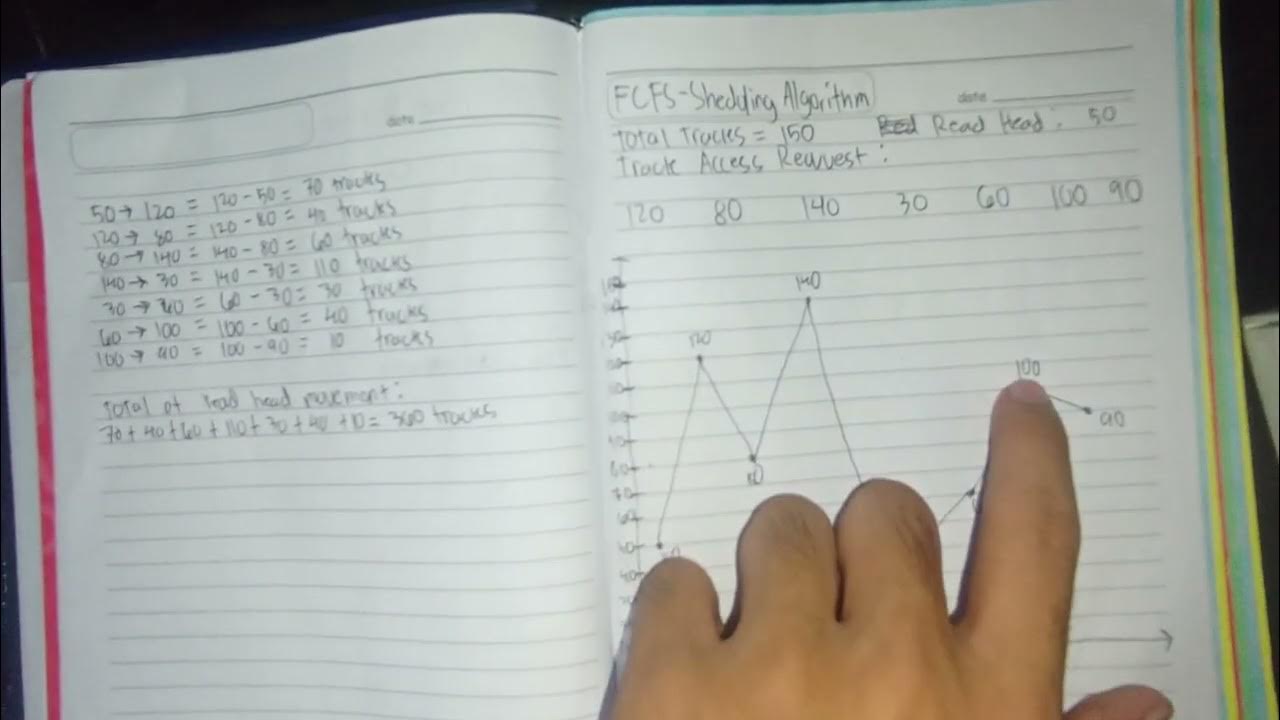 date
50 → 120 = 120 - 50 = 70 tracks
120 → 80 = 120 - 80 = 40 tracks
80 → 140 = 140 - 80 = 60 tracks
140 → 30 = 140 - 30 = 110 tracks
30 → 60 = 60 - 30 = 30 tracks
60 → 100 = 100 - 60 = 40 tracks
100 → 90 = 100 - 90 = 10 tracks
Total of read head movement:
70 + 40 + 60 + 110 + 30 + 40 + 10 = 360 tracks
FCFS-Shedding Algorithm
date
Total Tracks = 150 Read Head: 50
Track Access Request:
120 80 140 30 60 100 90
140
120
100
90
80
70
60